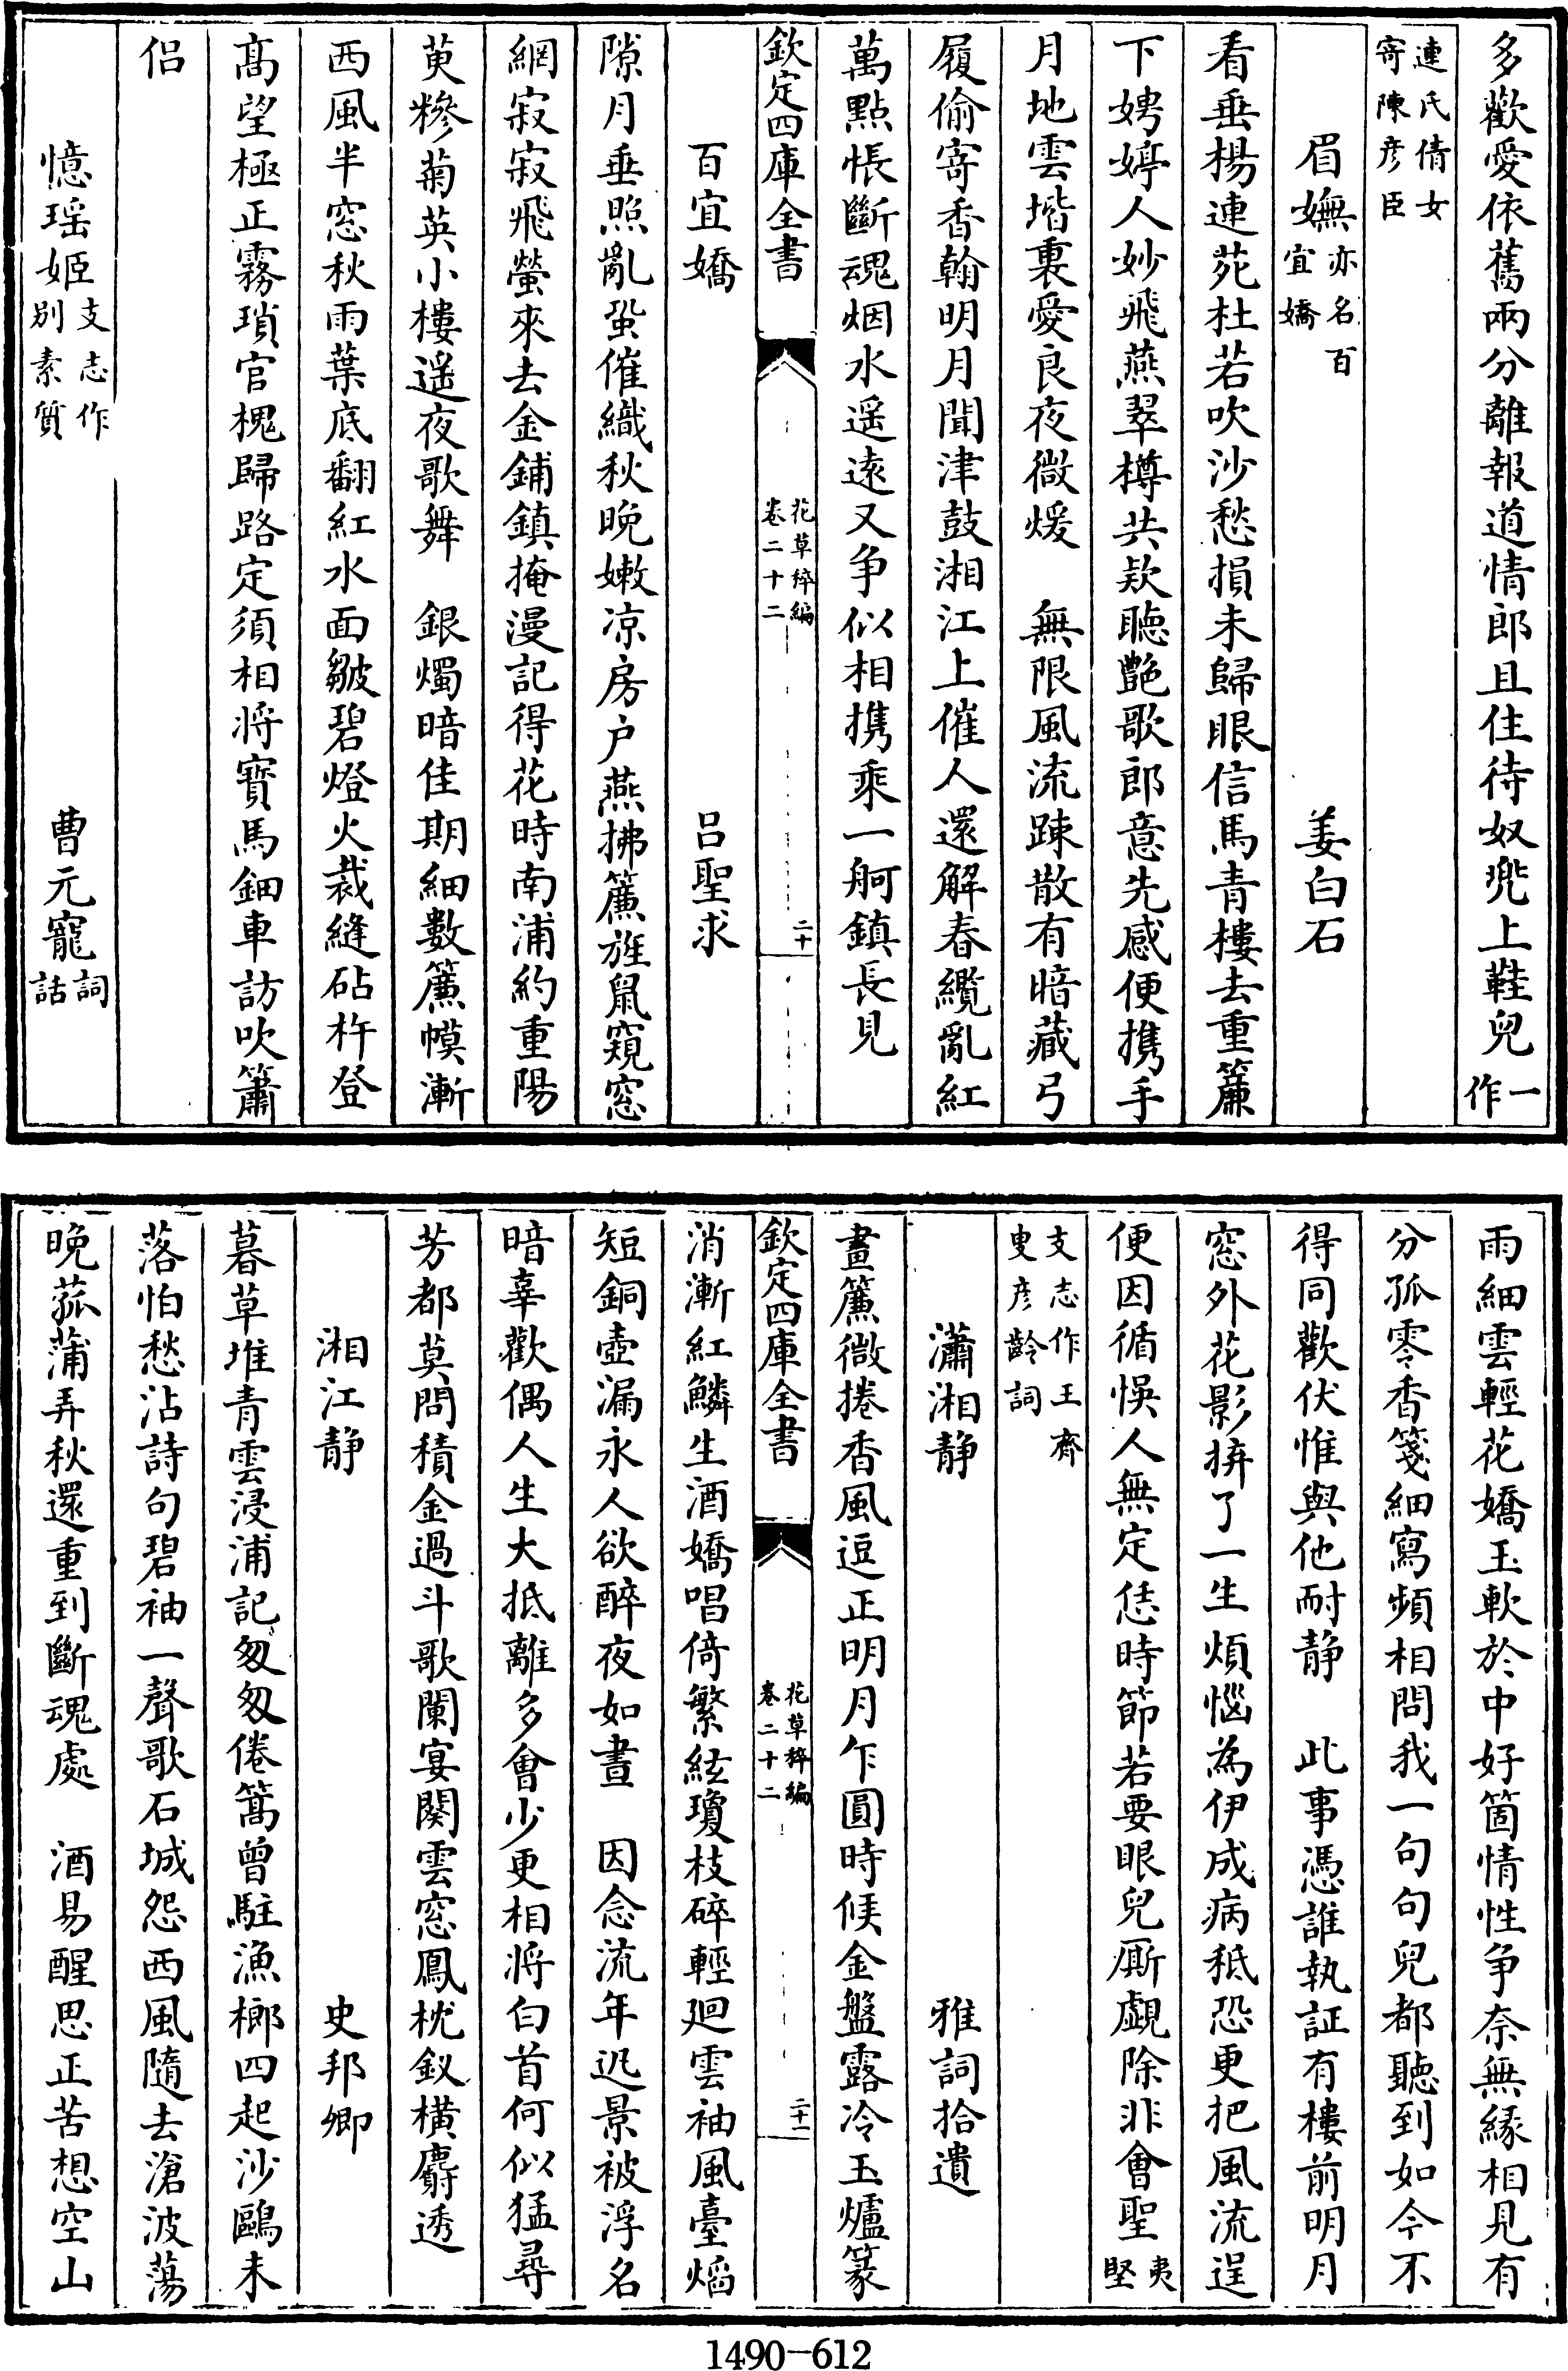 多歡愛依舊兩分離報道情郎且住待奴兠上鞋兒一作
連氏倩女
寄陳彦臣
眉嫵亦名百宜嬌　姜白石
看垂楊連苑杜若吹沙愁損未歸眼信馬青樓去重簾
下娉婷人妙飛燕翠樽共欵聽艷歌郎意先感便携手
月地雲堦裏愛良夜微煖　無限風流踈散有暗藏弓
履偷寄香翰明月聞津鼓湘江上催人還解春纜亂紅
萬點悵斷魂烟水遥逺又争似相携乘一舸鎮長見
欽定四庫全書
花草稡編
卷二十二
二十
百宜嬌　吕聖求
隙月垂照亂蛩催織秋晚嫩凉房户燕拂簾旌鼠窺窓
網寂寂飛螢來去金鋪鎮掩漫記得花時南浦約重陽
萸糝菊英小樓遥夜歌舞　銀燭暗佳期細數簾幙漸
西風半窓秋雨葉底翻紅水面皺碧燈火裁縫砧杵登
髙望極正霧瑣官槐歸路定須相将寳馬鈿車訪吹簫
侣
憶瑶姬支志作别素質　曹元寵詞話
雨細雲輕花嬌玉軟於中好箇情性争奈無縁相見有
分孤零香箋細寫頻相問我一句句兒都聽到如今不
得同歡伏惟與他耐静　此事憑誰執証有樓前明月
窓外花影拚了一生煩惱為伊成病秪恐更把風流逞
便因循悞人無定恁時節若要眼兒厮覷除非會聖夷堅
支志作王齊
叟彦齡詞
瀟湘静　雅詞拾遺
畫簾微捲香風逗正明月乍圓時候金盤露冷玉爐篆
欽定四庫全書
花草稡編
卷二十二
二十一
消漸紅鱗生酒嬌唱倚繁絃瓊枝碎輕廻雲袖風臺熖
短銅壺漏永人欲醉夜如晝　因念流年迅景被浮名
暗辜歡偶人生大抵離多會少更相将白首何似猛尋
芳都莫問積金過斗歌闌宴闋雲窓鳳枕釵横麝透
湘江静　史邦卿
暮草堆青雲浸浦記匆匆倦篙曾駐漁榔四起沙鷗未
落怕愁沾詩句碧袖一聲歌石城怨西風隨去滄波蕩
晚菰蒲弄秋還重到斷魂處　酒易醒思正苦想空山
1490-612